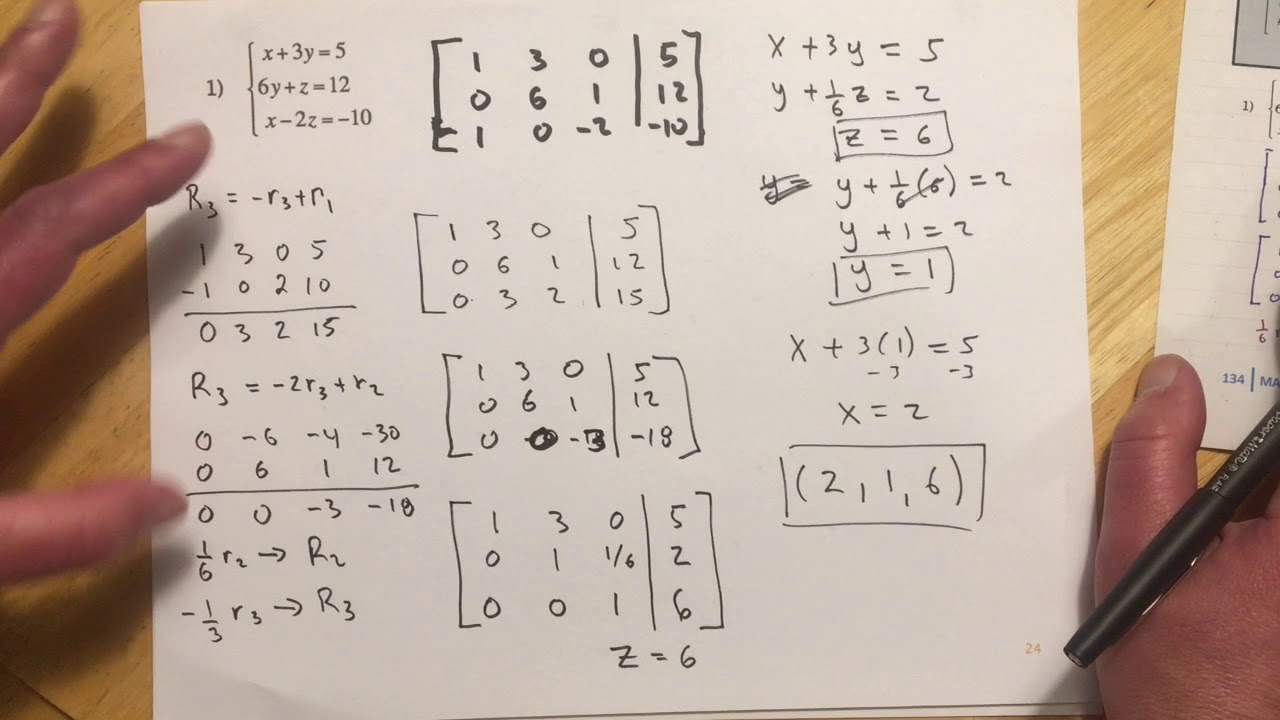 1) x+3y=5
6y+z=12
x-2z=-10
1 3 0 | 5
0 6 1 | 12
1 0 -2 | -10
R₃ = -r₃+r₁
1 3 0 5
-1 0 2 10
0 3 2 15
1 3 0 | 5
0 6 1 | 12
0 3 2 | 15
R₃ = -2r₃+r₂
0 -6 -4 -30
0 6 1 12
0 0 -3 -18
1 3 0 | 5
0 6 1 | 12
0 0 -3 | -18
1/6 r₂ → R₂
-1/3 r₃ → R₃
1 3 0 | 5
0 1 1/6 | 2
0 0 1 | 6
z = 6
x + 3y = 5
y + 1/6 z = 2
z = 6
y = y + 1/6 (6) = 2
y + 1 = 2
y = 1
x + 3(1) = 5
-3 -3
x = 2
(2, 1, 6)
24
1)
1/6
134 | MA